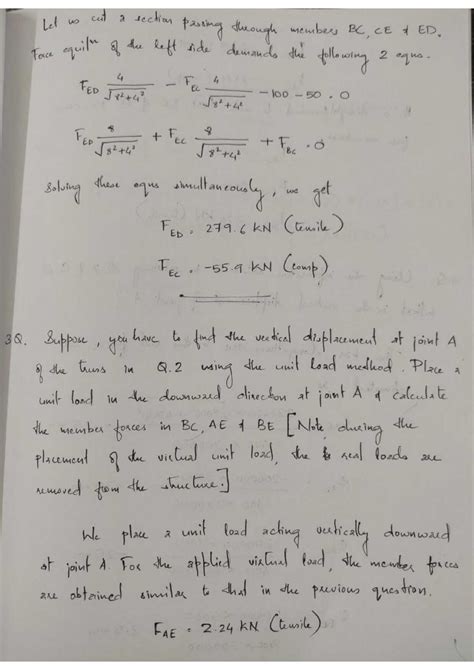 Let us cut a section passing through members BC, CE & ED.
Force equilm of the left side demands the following 2 eqns.
F_ED 4/√(8²+4²) - F_EC 4/√(8²+4²) - 100 - 50 = 0
F_ED 8/√(8²+4²) + F_EC 8/√(8²+4²) + F_BC = 0
Solving these eqns simultaneously, we get
F_ED = 279.6 kN (tensile)
F_EC = -55.9 kN (comp)
3Q. Suppose, you have to find the vertical displacement at joint A
of the truss in Q.2 using the unit load method. Place a
unit load in the downward direction at joint A & calculate
the member forces in BC, AE & BE [Note, during the
placement of the virtual unit load, the real loads are
removed from the structure.]
We place a unit load acting vertically downward
at joint A. For the applied virtual load, the member forces
are obtained similar to that in the previous question.
F_AE = 2.24 kN (tensile)